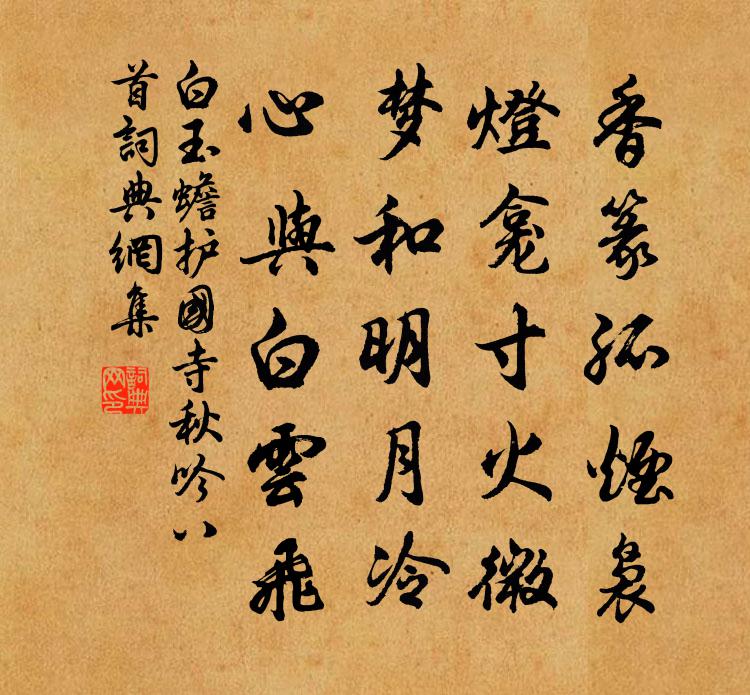 香篆孤煙裊
燈龕寸火微
梦和明月冷
心與白雲飛
白玉蟾护國寺秋吟八
首詞典網集
詞典
网印